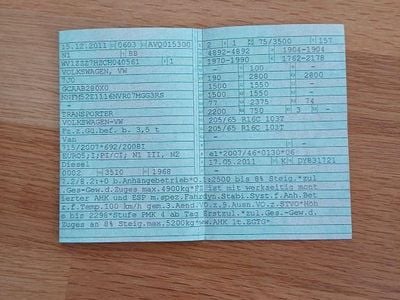 15.12.2011 0603 AVQ015300
N1 BB
WV1ZZZ7HZCH040561 1
VOLKSWAGEN, VW
7J0
GCAAB280X0
TRANSPORTER
VOLKSWAGEN-VW
Fz.z.Gü.bef.b. 3,5 t
Van
715/2007*692/2008I
EURO5;I;PI/CI; N1 III, N2
Diesel
0002 3510 1968
2 1 75/3500 157
4892-4892 1904-1904
1970-1990 1762-2178
- 100 -
190 2800 2800
1500 1550 -
1500 1550 -
77 2375 74
2200 750 3 -
205/65 R16C 103T
205/65 R16C 103T
-
e1*2007/46*0130*06
17.05.2011 K
b.Anhängebetrieb*O.1:2500 bis 8% Steig.*zul
.Ges-Gew.d.Zuges max.4900kg* ist mit werkseitig mont
ierter AHK und ESP m.spez.Fahrdyn.Stabi.Syst.f.Anh.Bet
z.f.Temp.100 km/h gem.3.Aend.VO.z.9.Ausn.VO.z.STVO*Höh
e bis 2298*Stufe PMK 4 ab Tag Erstzul.*zul.Ges.-Gew.d.
Zuges an 8% Steig.max.5200kg*ww.AHK lt.EGTG*